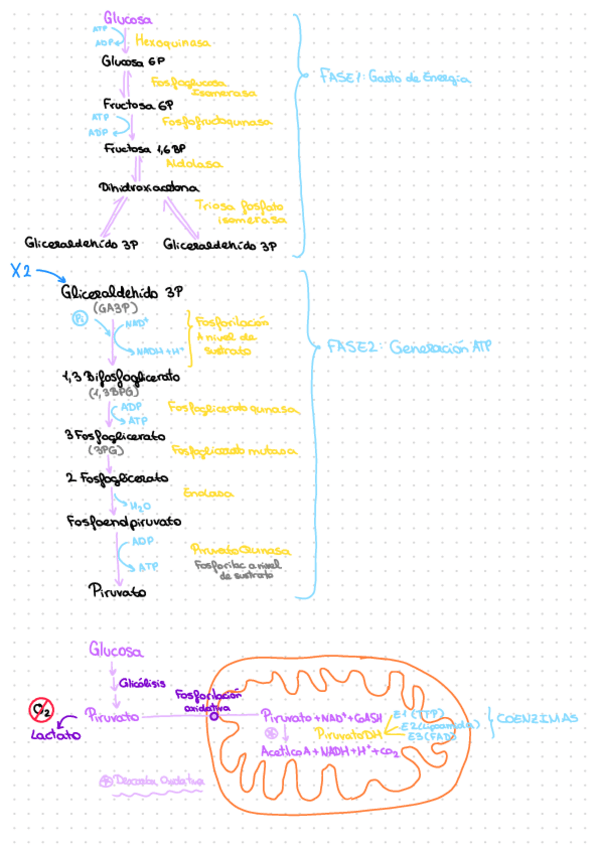 Glucosa
ATP
ADP
Hexoquinasa
Glucosa 6P
Fosfoglucosa
Isomerasa
Fructosa 6P
ATP
ADP
Fosfofructoquinasa
Fructosa 1,6 BP
Aldolasa
Dihidroxiacetona
Triosa fosfato
isomerasa
Gliceraldehído 3P
Gliceraldehído 3P
FASE 1: Gasto de Energía
X2
Gliceraldehído 3P
(GA3P)
Pi
NAD+
NADH + H+
Fosforilación
A nivel de
sustrato
1,3 Bifosfoglicerato
(1,3BPG)
ADP
ATP
Fosfoglicerato quinasa
3 Fosfoglicerato
(3PG)
Fosfoglicerato mutasa
2 Fosfoglicerato
H2O
Enolasa
Fosfoenolpiruvato
ADP
ATP
Piruvato Quinasa
Fosforilac a nivel
de sustrato
Piruvato
FASE 2: Generación ATP
Glucosa
Glicólisis
Fosforilación
oxidativa
O2
Piruvato
Lactato
Piruvato + NAD+ +
E1 (TTP)
PiruvatoDH
E3 (FAD)
COENZIMAS
AcetilcoA + NADH + H+ + CO2
Oxidativa